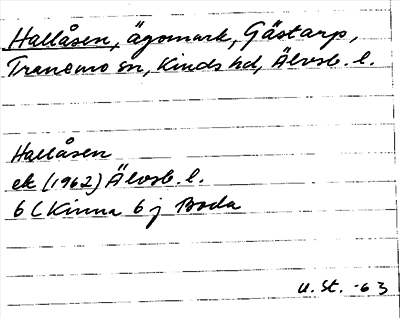 Hallåsen, ägomark, Gästarp,
Tranemo sn, Kinds hd, Älvsb. l.
Hallåsen
ek (1962) Älvsb. l.
6 C Kinna 6 j Boda
U. St. -63